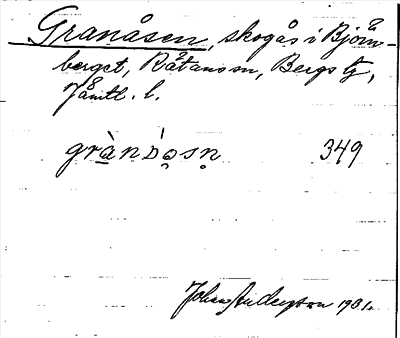 Granåsen, skogås i Björn-
berget, Råtans sn, Bergs tg,
Jämtl. l.
grànɒ́sn̥ 349
Johan Anderson 1931.